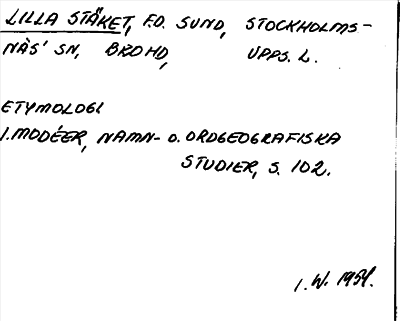 LILLA STÄKET, F.D. SUND, STOCKHOLMS-
NÄS' SN, BRO HD, UPPS. L.
ETYMOLOGI
I. MODÉER, NAMN- O. ORDGEOGRAFISKA
STUDIER, S. 102.
I. W. 1954.